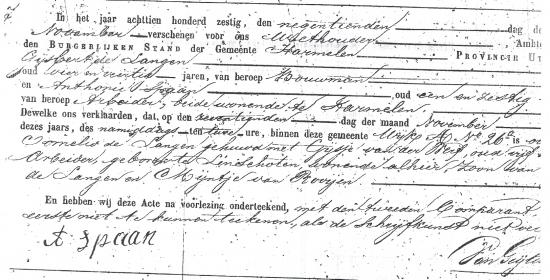 In het jaar achttien honderd zestig, den negentienden dag de
November verschenen voor ons Wethouder Ambte
den BURGERLIJKEN STAND der Gemeente Harmelen PROVINCIE UT
Gijsbert de Langen
oud vier en veertig jaren, van beroep Bouwman
en Anthonie Spaan oud een en zestig
van beroep Arbeider, beide wonende te Harmelen
Dewelke ons verklaarden, dat, op den zeventienden dag der maand November
dezes jaars, des namiddags ten twee ure, binnen deze gemeente Wijk A. No 26a is
Cornelis de Langen gehuwd met Gijsje van der Werf, oud
Arbeider, geboren te Linschoten wonende alhier, Zoon van
de Langen en Mijntje van Rooijen
En hebben wij deze Acte na voorlezing onderteekend, met den tweeden Comparant
eerste niet te kunnen teekenen, als de Schrijfkunst niet
A Spaan